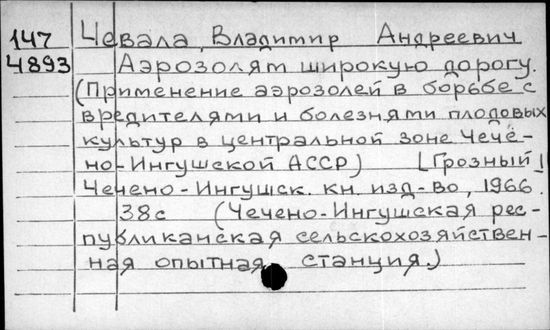 147 Чевала, Владимир Андреевич
4893 Аэрозолям широкую дорогу.
(Применение аэрозолей в борьбе с
вредителями и болезнями плодовых
культур в центральной зоне Чече-
но-Ингушской АССР) [Грозный]
Чечено-Ингушск. кн. изд-во, 1966.
38с (Чечено-Ингушская рес-
публиканская сельскохозяйствен-
ная опытная станция.)